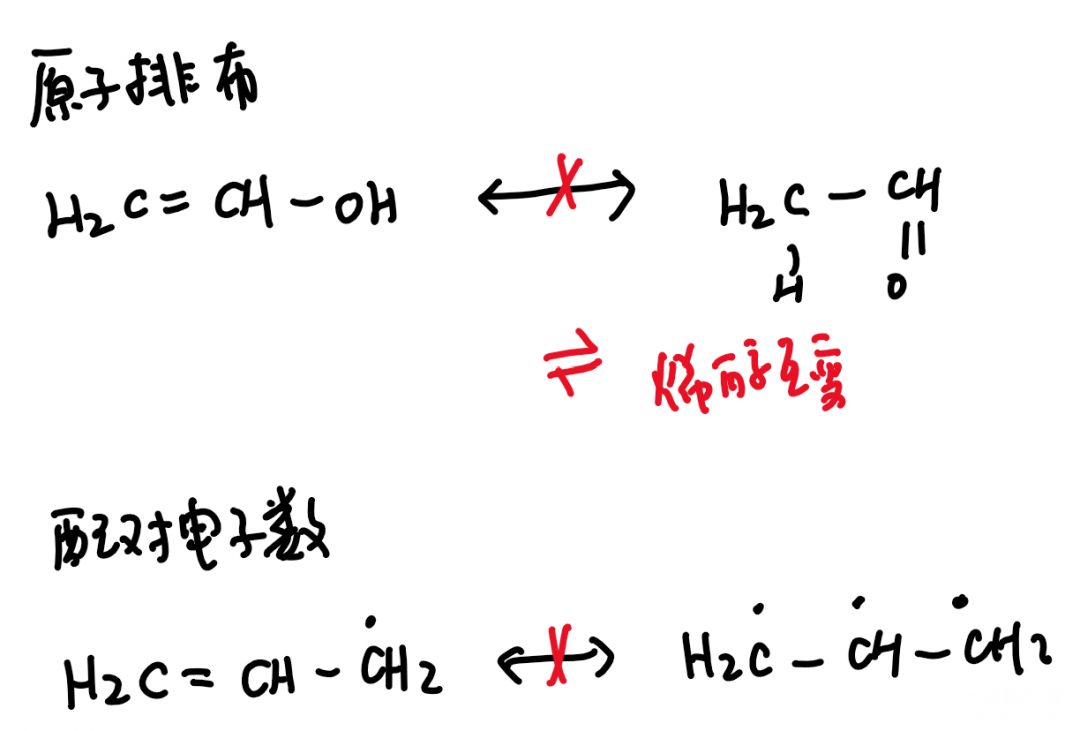 原子排布
H₂C=CH-OH ↔ H₂C-CH
H O
⇌ 烯醇互变
配对电子数
H₂C=CH-ĊH₂ ↔ H₂Ċ-ĊH-ĊH₂